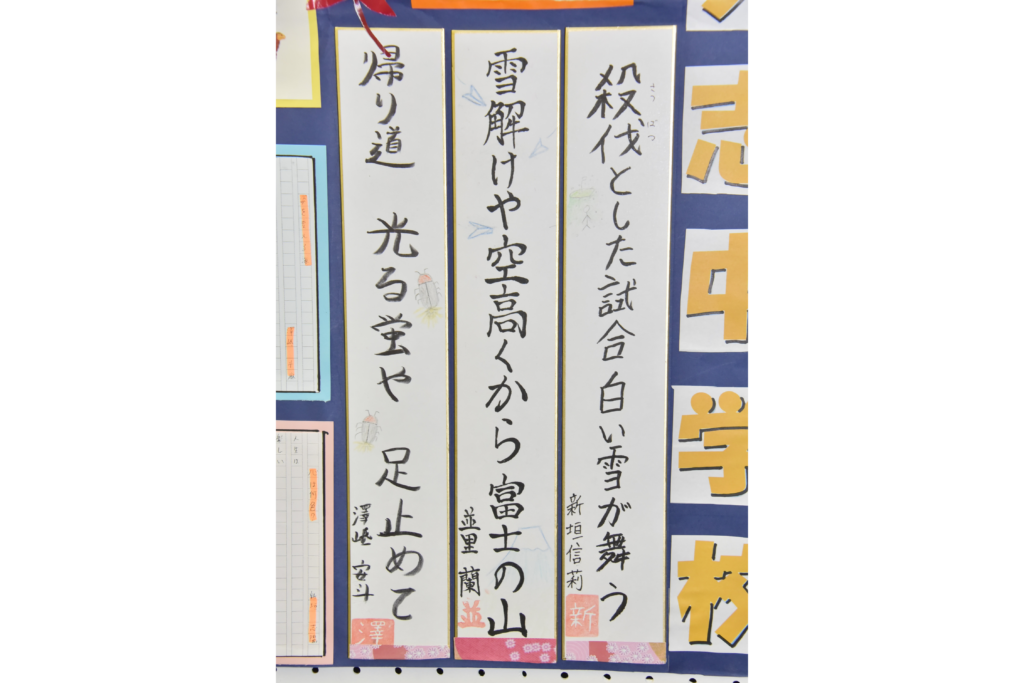 志中学校
殺伐とした試合白い雪が舞う
さつ
ばつ
新垣信莉
新
雪解けや空高くから富士の山
並里 蘭
並
帰り道 光る蛍や 足止めて
澤﨑 安斗
澤